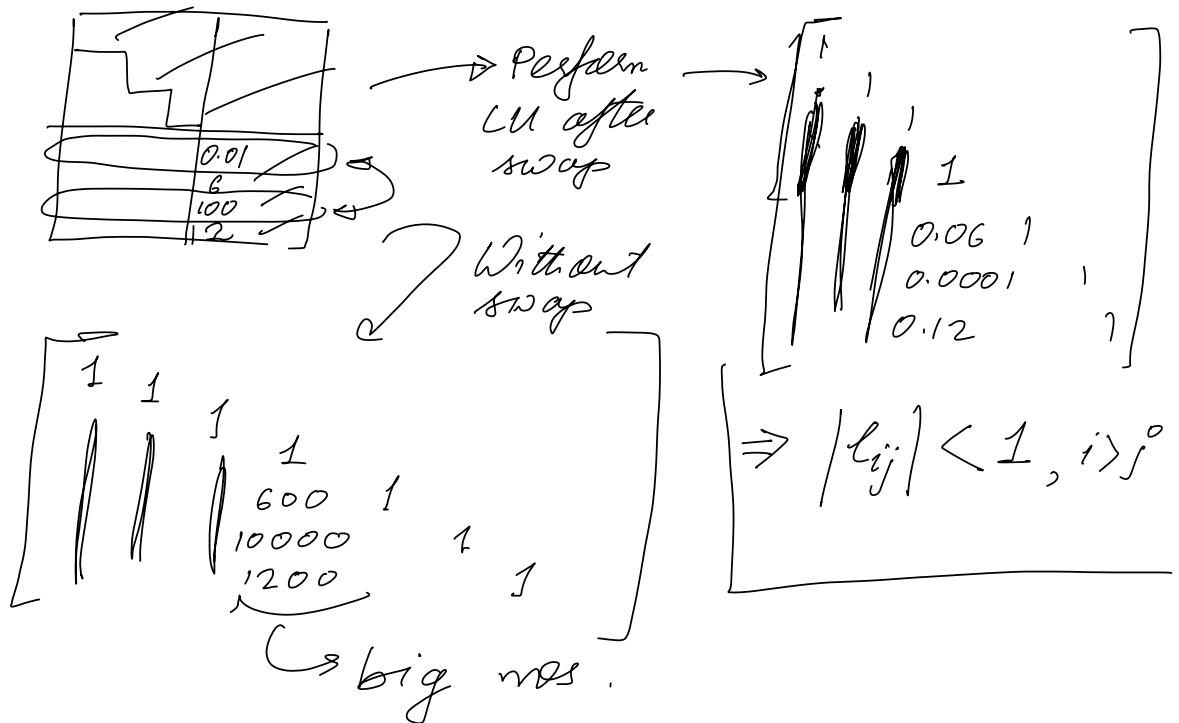 0.01
6
100
12
Perform
LU after
swap
1
1
1
1
0.06 1
0.0001 1
0.12 1
Without
swap
1
1
1
1
600 1
10000 1
1200 1
big nos.
⇒ |lij| < 1, i>j